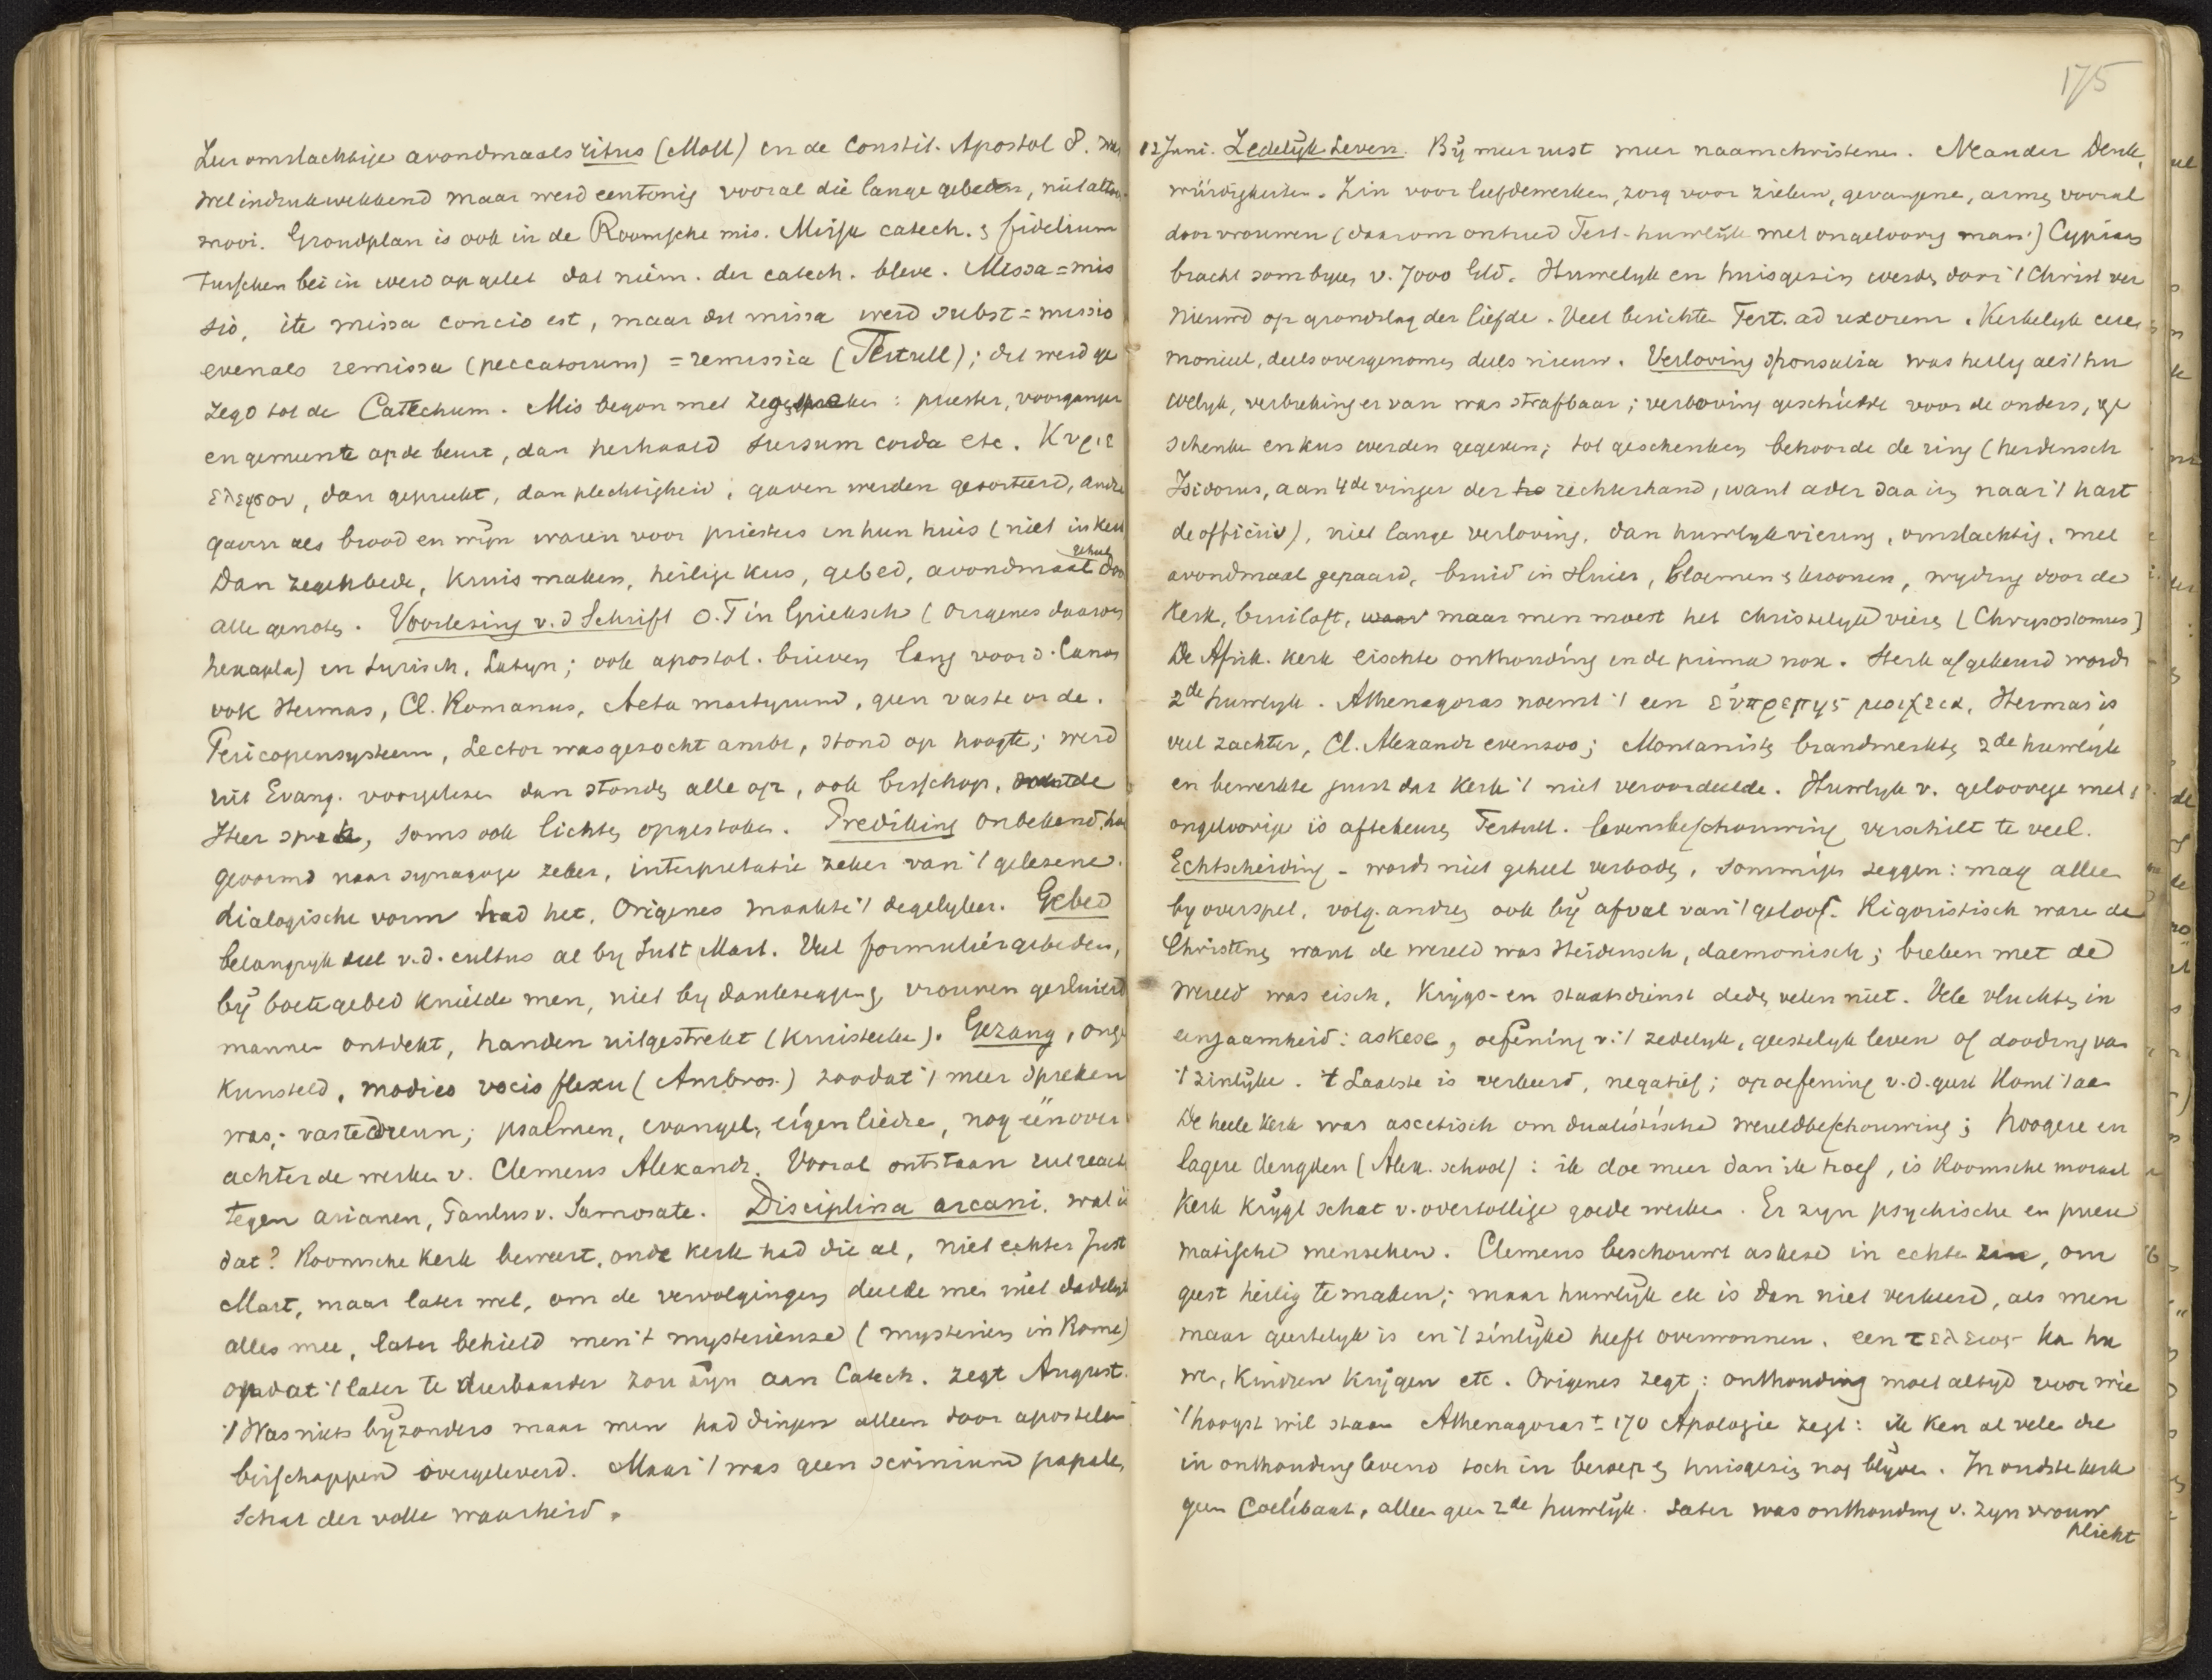 Zeer omslachtige avondmaalsritus (Moll) en de Constit. Apostol 8. Was
wel indrukwekkend maar werd eentonig vooral die lange gebeden, niet altoos
mooi. Grondplan is ook in de Roomsche mis. Missa catech. & fidelium
Tusschen bei in werd op gelet dat niem. der catech. bleve. Missa = mis
sio, ite missa concio est, maar dit missa werd subst = missio
evenals remissa (peccatorum) = remissia (Tertull); dit werd ge
zegd tot de Catechum. Mis begon met : priester, voorganger
en gemeente op de beurt, dan herhaald sursum corda etc. Κυριε
ελεησον, dan gepreekt, dan plechtigheid, gaven werden gesorteerd, andre
gaven als brood en wijn waren voor priesters in hun huis (niet in kerk
Dan zegenbede, kruis maken, heilige kus, gebed, avondmaal door
alle genoten. Voorlezing v. d Schrift O.T in Grieksch (Origenes daarom
hexapla) en Syrisch, Latyn; ook apostol. brieven lang voor d. Canon
ook Hermas, Cl. Romanus, Acta martyrum, geen vaste orde.
Pericopensysteem, Lector was gezocht ambt, stond op hoogte; werd
uit Evang. voorgelezen dan stonden alle op, ook bisschop,
Heer sprak, soms ook lichten opgestoken. Prediking onbekend, hoe
gevormd naar synagoge zeker, interpretatie zeker van 't gelezene.
dialogische vorm had het, Origenes maakte 't degelyker. Gebed
belangryk deel v. d. cultus al by Just Mart. Veel formuliergebeden,
bij boetegebed knielde men, niet by dankzegging, vrouwen gesluierd
mannen ontdekt, handen uitgestrekt (kruisteeken). Gezang, onge
kunsteld, modico vocis flexu (Ambros.) zoodat 't meer spreken
was; vaste dreun; psalmen, evangel, eigen liedre, nog een over
achter de werken v. Clemens Alexandr. Vooral ontstaan uit reactie
tegen arianen, Paulus v. Samosate. Disciplina arcani. wat is
dat? Roomsche kerk beweert, oude kerk had die al, niet echter Just
Mart, maar later wel, om de vervolgingen deelde men niet dadelijk
alles mee, later behield men 't mysterieuze (mysterien in Rome)
opdat 't later te dierbaarder zou zijn aan Catech. zegt August.
't Was niets byzonders maar men had dingen alleen door apostelen
bisschoppen overgeleverd. Maar 't was geen scrinium papale,
Schat der volle waarheid.
175
12 Juni. Zedelijk Leven. Bij meer rust meer naamchristenen. Neander Denk,
würdigkeiten. Zin voor liefdewerken, zorg voor zieken, gevangene, armen vooral
door vrouwen (daarom ontried Tert. huwlijk met ongeloovig man!) Cyprian
bracht som byeen v. 7000 Gld. Huwelyk en huisgezin werden door 't Christ ver
nieuwd op grondslag der liefde. Veel berichten Tert. ad uxorem. Kerkelyk cere
monieel, deels overgenomen deels nieuw. Verloving sponsalia was heilig als 't hu
welyk, verbreking er van was strafbaar; verloving geschiedde voor de ouders, ge
schenken en kus werden gegeven; tot geschenken behoorde de ring (heidensch
Isidorus, aan 4de vinger der rechterhand, want ader daa in naar 't hart
de officiis), niet lange verloving, dan huwlyksviering, omslachtig, met
avondmaal gepaard, bruid in sluier, bloemen & kroonen, wyding door de
kerk, bruiloft, maar men moest het christelyk vieren (Chrysostomus)
De Afrik. kerk eischte onthouding in de prima nox. Sterk afgekeurd wordt
2de huwlyk. Athenagoras noemt 't een ευπρεπης μοιχεια, Hermas is
veel zachter, Cl. Alexandr evenzoo; Montanisten brandmerkten 2de huwlijk
en bewerkte juist dat kerk 't niet veroordeelde. Huwlyk v. geloovige met
ongeloovige is afkeuren Tertull. levensbeschouwing verschilt te veel.
Echtscheiding - wordt niet geheel verboden, sommigen zeggen: mag alleen
by overspel, volg. andren ook bij afval van 't geloof. Rigoristisch ware de
Christenen want de wereld was Heidensch, daemonisch; breken met de
wereld was eisch, Krijgs- en staatsdienst deden velen niet. Vele vluchten in
eenzaamheid: askese, oefening v. 't zedelyk, geestelyk leven of dooding van
't zinlijke. 't Laatste is verkeerd, negatief; op oefening v. d. geest komt 't aan
De heele kerk was ascetisch om dualistische wereldbeschouwing; hoogere en
lagere deugden (Alex. school): ik doe meer dan ik hoef, is Roomsche moraal
Kerk krijgt schat v. overtollige goede werken. Er zyn psychische en pneu
matische menschen. Clemens beschouwt askese in echte zin, om
geest heilig te maken; maar huwlijk etc is dan niet verkeerd, als men
maar geestelyk is en 't zinlijke heeft overwonnen. een τελειος kan hu
wen, kindren krijgen etc. Origenes zegt: onthouding moet altyd voor wie
't hoogst wil staan Athenagoras ± 170 Apologie zegt: ik ken al vele die
in onthouding levend toch in beroep & huisgezin nog blijven. In oudste kerk
geen Coelibaat, alleen geen 2de huwlijk. Later was onthouding v. zyn vrouw
plicht